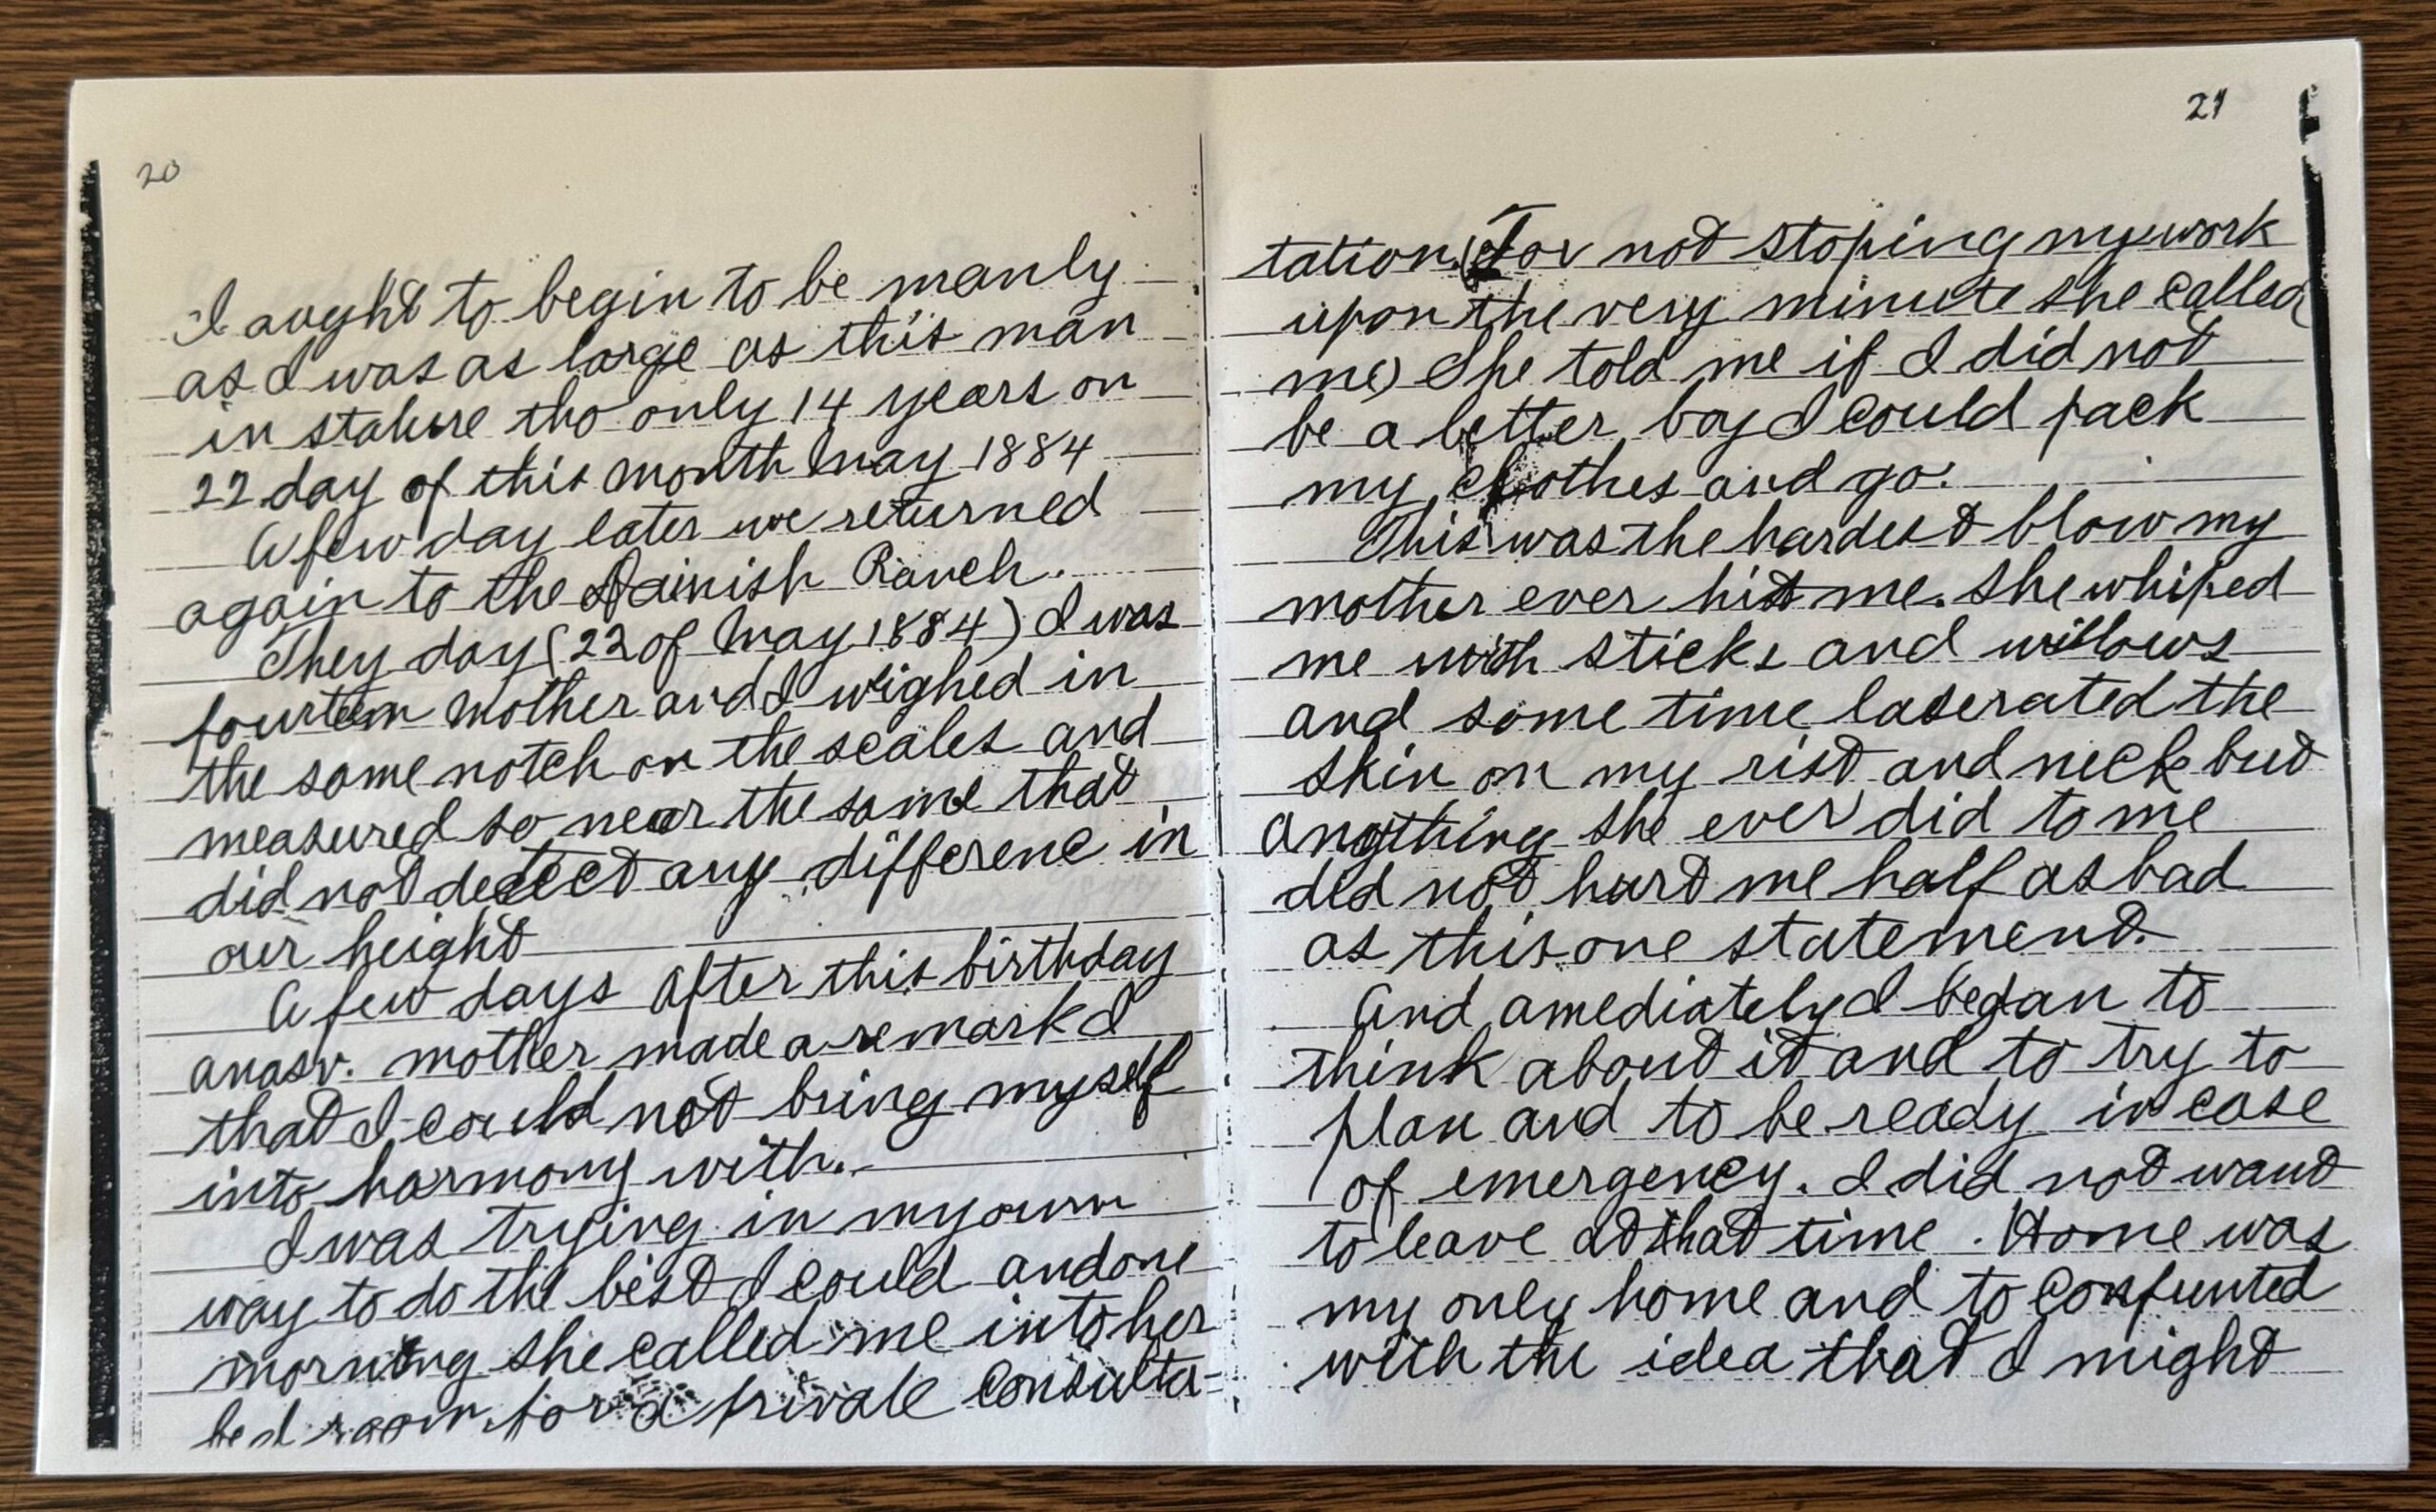 20
I aught to begin to be manly
as I was as large as this man
in stature tho only 14 years on
22 day of this month May 1884
A few day later we returned
again to the Dainish Ranch.
They day (22 of May 1884) I was
fourteen Mother and I wighed in
the same notch on the scales and
measured so near the same that
did not detect any differenc in
our height
A few days after this birthday
anasv. mother made a remark I
that I could not bring myself
into harmony with.
I was trying in my own
way to do the best I could and one
morning she called me into her
bed room for a private consulta-
21
tation. (For not stoping my work
upon the very minute she called
me) She told me if I did not
be a better boy I could pack
my clothes and go.
This was the hardest blow my
mother ever hit me. She whiped
me with sticks and willows
and some time laserated the
skin on my rist and neck but
anything she ever did to me
did not hurt me half as bad
as this one statement.
And amediately I began to
think about it and to try to
plan and to be ready in case
of emergency. I did not want
to leave at that time. Home was
my only home and to confunted
with the idea that I might